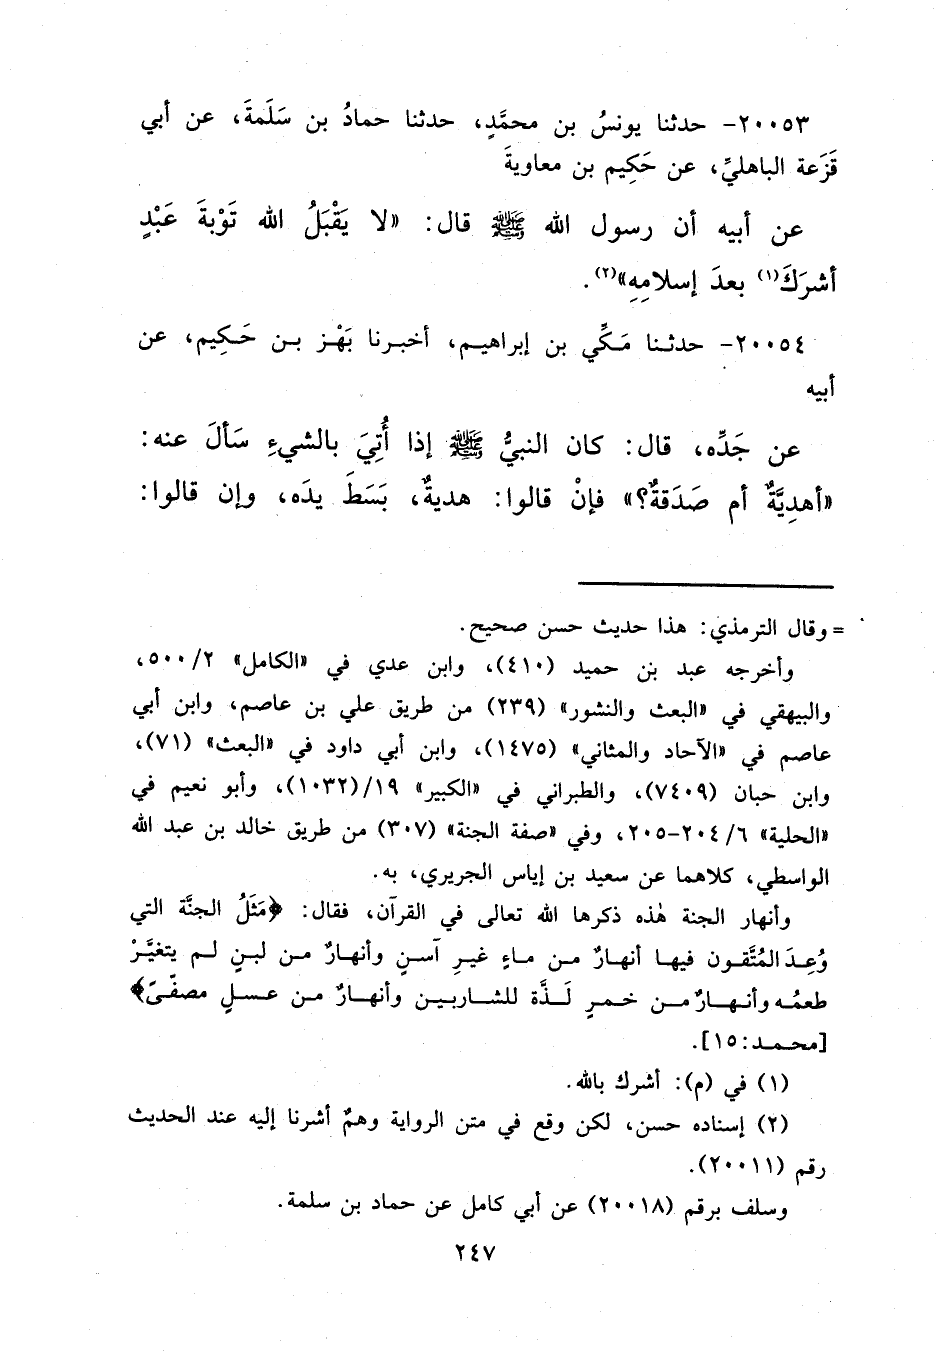 ٢٠٠٥٣- حدثنا يونسُ بن محمَّدٍ، حدثنا حمادُ بن سَلَمةَ، عن أبي
قَزَعة الباهليِّ، عن حَكِيم بن معاويةَ
عن أبيه أن رسول الله ﷺ قال: «لا يَقْبَلُ الله تَوْبةَ عَبْدٍ
أشرَكَ(١) بعدَ إسلامِهِ»(٢).
٢٠٠٥٤- حدثنا مَكِّي بن إبراهيم، أخبرنا بَهْز بن حَكِيم، عن
أبيه
عن جَدِّه، قال: كان النبيُّ ﷺ إذا أُتِيَ بالشيءِ سَألَ عنه:
«أهدِيَّةٌ أم صَدَقةٌ؟» فإنْ قالوا: هديةٌ، بَسَطَ يدَه، وإن قالوا:
= وقال الترمذي: هذا حديث حسن صحيح.
وأخرجه عبد بن حميد (٤١٠)، وابن عدي في «الكامل» ٥٠٠/٢،
والبيهقي في «البعث والنشور» (٢٣٩) من طريق علي بن عاصم، وابن أبي
عاصم في «الآحاد والمثاني» (١٤٧٥)، وابن أبي داود في «البعث» (٧١)،
وابن حبان (٧٤٠٩)، والطبراني في «الكبير» ١٩/(١٠٣٢)، وأبو نعيم في
«الحلية» ٢٠٤/٦-٢٠٥، وفي «صفة الجنة» (٣٠٧) من طريق خالد بن عبد الله
الواسطي، كلاهما عن سعيد بن إياس الجريري، به.
وأنهار الجنة هٰذه ذكرها الله تعالى في القرآن، فقال: ﴿مَثَلُ الجنَّة التي
وُعِدَ المُتَّقون فيها أنهارٌ من ماءٍ غيرِ آسنٍ وأنهارٌ من لبنٍ لم يتغيَّرْ
طعمُه وأنهارٌ من خمرٍ لَذَّة للشاربين وأنهارٌ من عسلٍ مصفّىً﴾
[محمد:١٥].
(١) في (م): أشرك بالله.
(٢) إسناده حسن، لكن وقع في متن الرواية وهمٌ أشرنا إليه عند الحديث
رقم (٢٠٠١١).
وسلف برقم (٢٠٠١٨) عن أبي كامل عن حماد بن سلمة.
٢٤٧